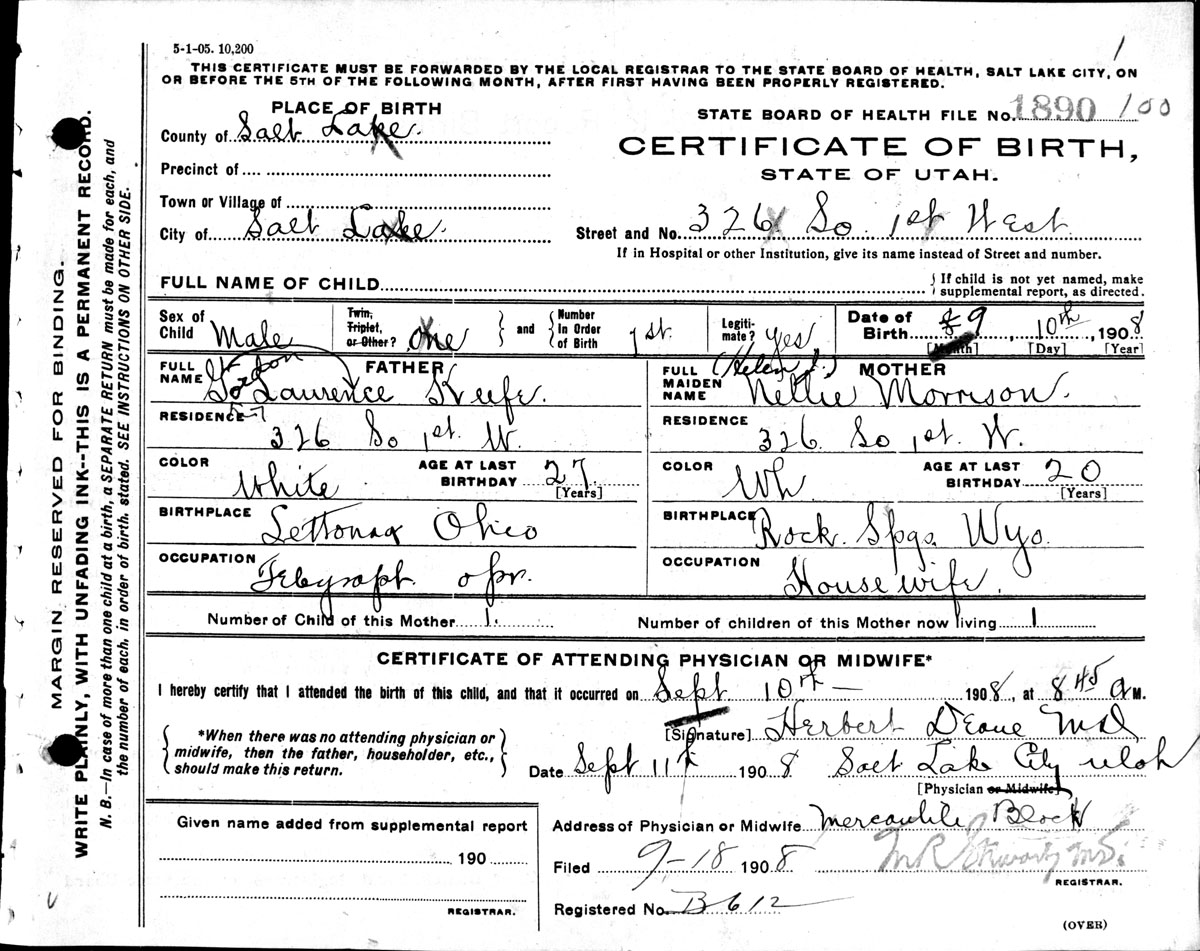 5-1-05. 10,200
1
THIS CERTIFICATE MUST BE FORWARDED BY THE LOCAL REGISTRAR TO THE STATE BOARD OF HEALTH, SALT LAKE CITY, ON
OR BEFORE THE 5TH OF THE FOLLOWING MONTH, AFTER FIRST HAVING BEEN PROPERLY REGISTERED.
PLACE OF BIRTH
County of Salt Lake.
Precinct of
Town or Village of
City of Salt Lake
STATE BOARD OF HEALTH FILE No. 1890 100
CERTIFICATE OF BIRTH,
STATE OF UTAH.
Street and No. 326 So. 1st West
If in Hospital or other Institution, give its name instead of Street and number.
FULL NAME OF CHILD
{ If child is not yet named, make
supplemental report, as directed.
Sex of Child Male
Twin, Triplet, or Other? One } and { Number In Order of Birth 1st.
Legiti- mate? yes
Date of Birth 9, 10th, 1908
[Month] [Day] [Year]
FATHER
FULL NAME Gordon Laurence Keefe.
RESIDENCE 326 So 1st. W.
COLOR White
AGE AT LAST BIRTHDAY 27.
[Years]
BIRTHPLACE Ohio
OCCUPATION Telegraph opr.
MOTHER
FULL MAIDEN NAME (Helen J.) Nellie Morrison.
RESIDENCE 326 So 1st. W.
COLOR Wh
AGE AT LAST BIRTHDAY 20
[Years]
BIRTHPLACE Rock. Spgs. Wyo.
OCCUPATION Housewife.
Number of Child of this Mother 1.
Number of children of this Mother now living 1
CERTIFICATE OF ATTENDING PHYSICIAN OR MIDWIFE*
I hereby certify that I attended the birth of this child, and that it occurred on Sept 10th — 1908, at 8 45 a M.
{ *When there was no attending physician or
midwife, then the father, householder, etc.,
should make this return. }
[Signature] Herbert Deane MD
Date Sept 11th 1908 Salt Lake City Utah
[Physician or Midwife]
Given name added from supplemental report
190
REGISTRAR.
Address of Physician or Midwife Mercantile Block
Filed 9-18 1908 M R Stewart MD.
REGISTRAR.
Registered No. B612
(OVER)
MARGIN RESERVED FOR BINDING.
WRITE PLAINLY, WITH UNFADING INK--THIS IS A PERMANENT RECORD.
N. B.—In case of more than one child at a birth, a SEPARATE RETURN must be made for each, and
the number of each, in order of birth, stated. SEE INSTRUCTIONS ON OTHER SIDE.